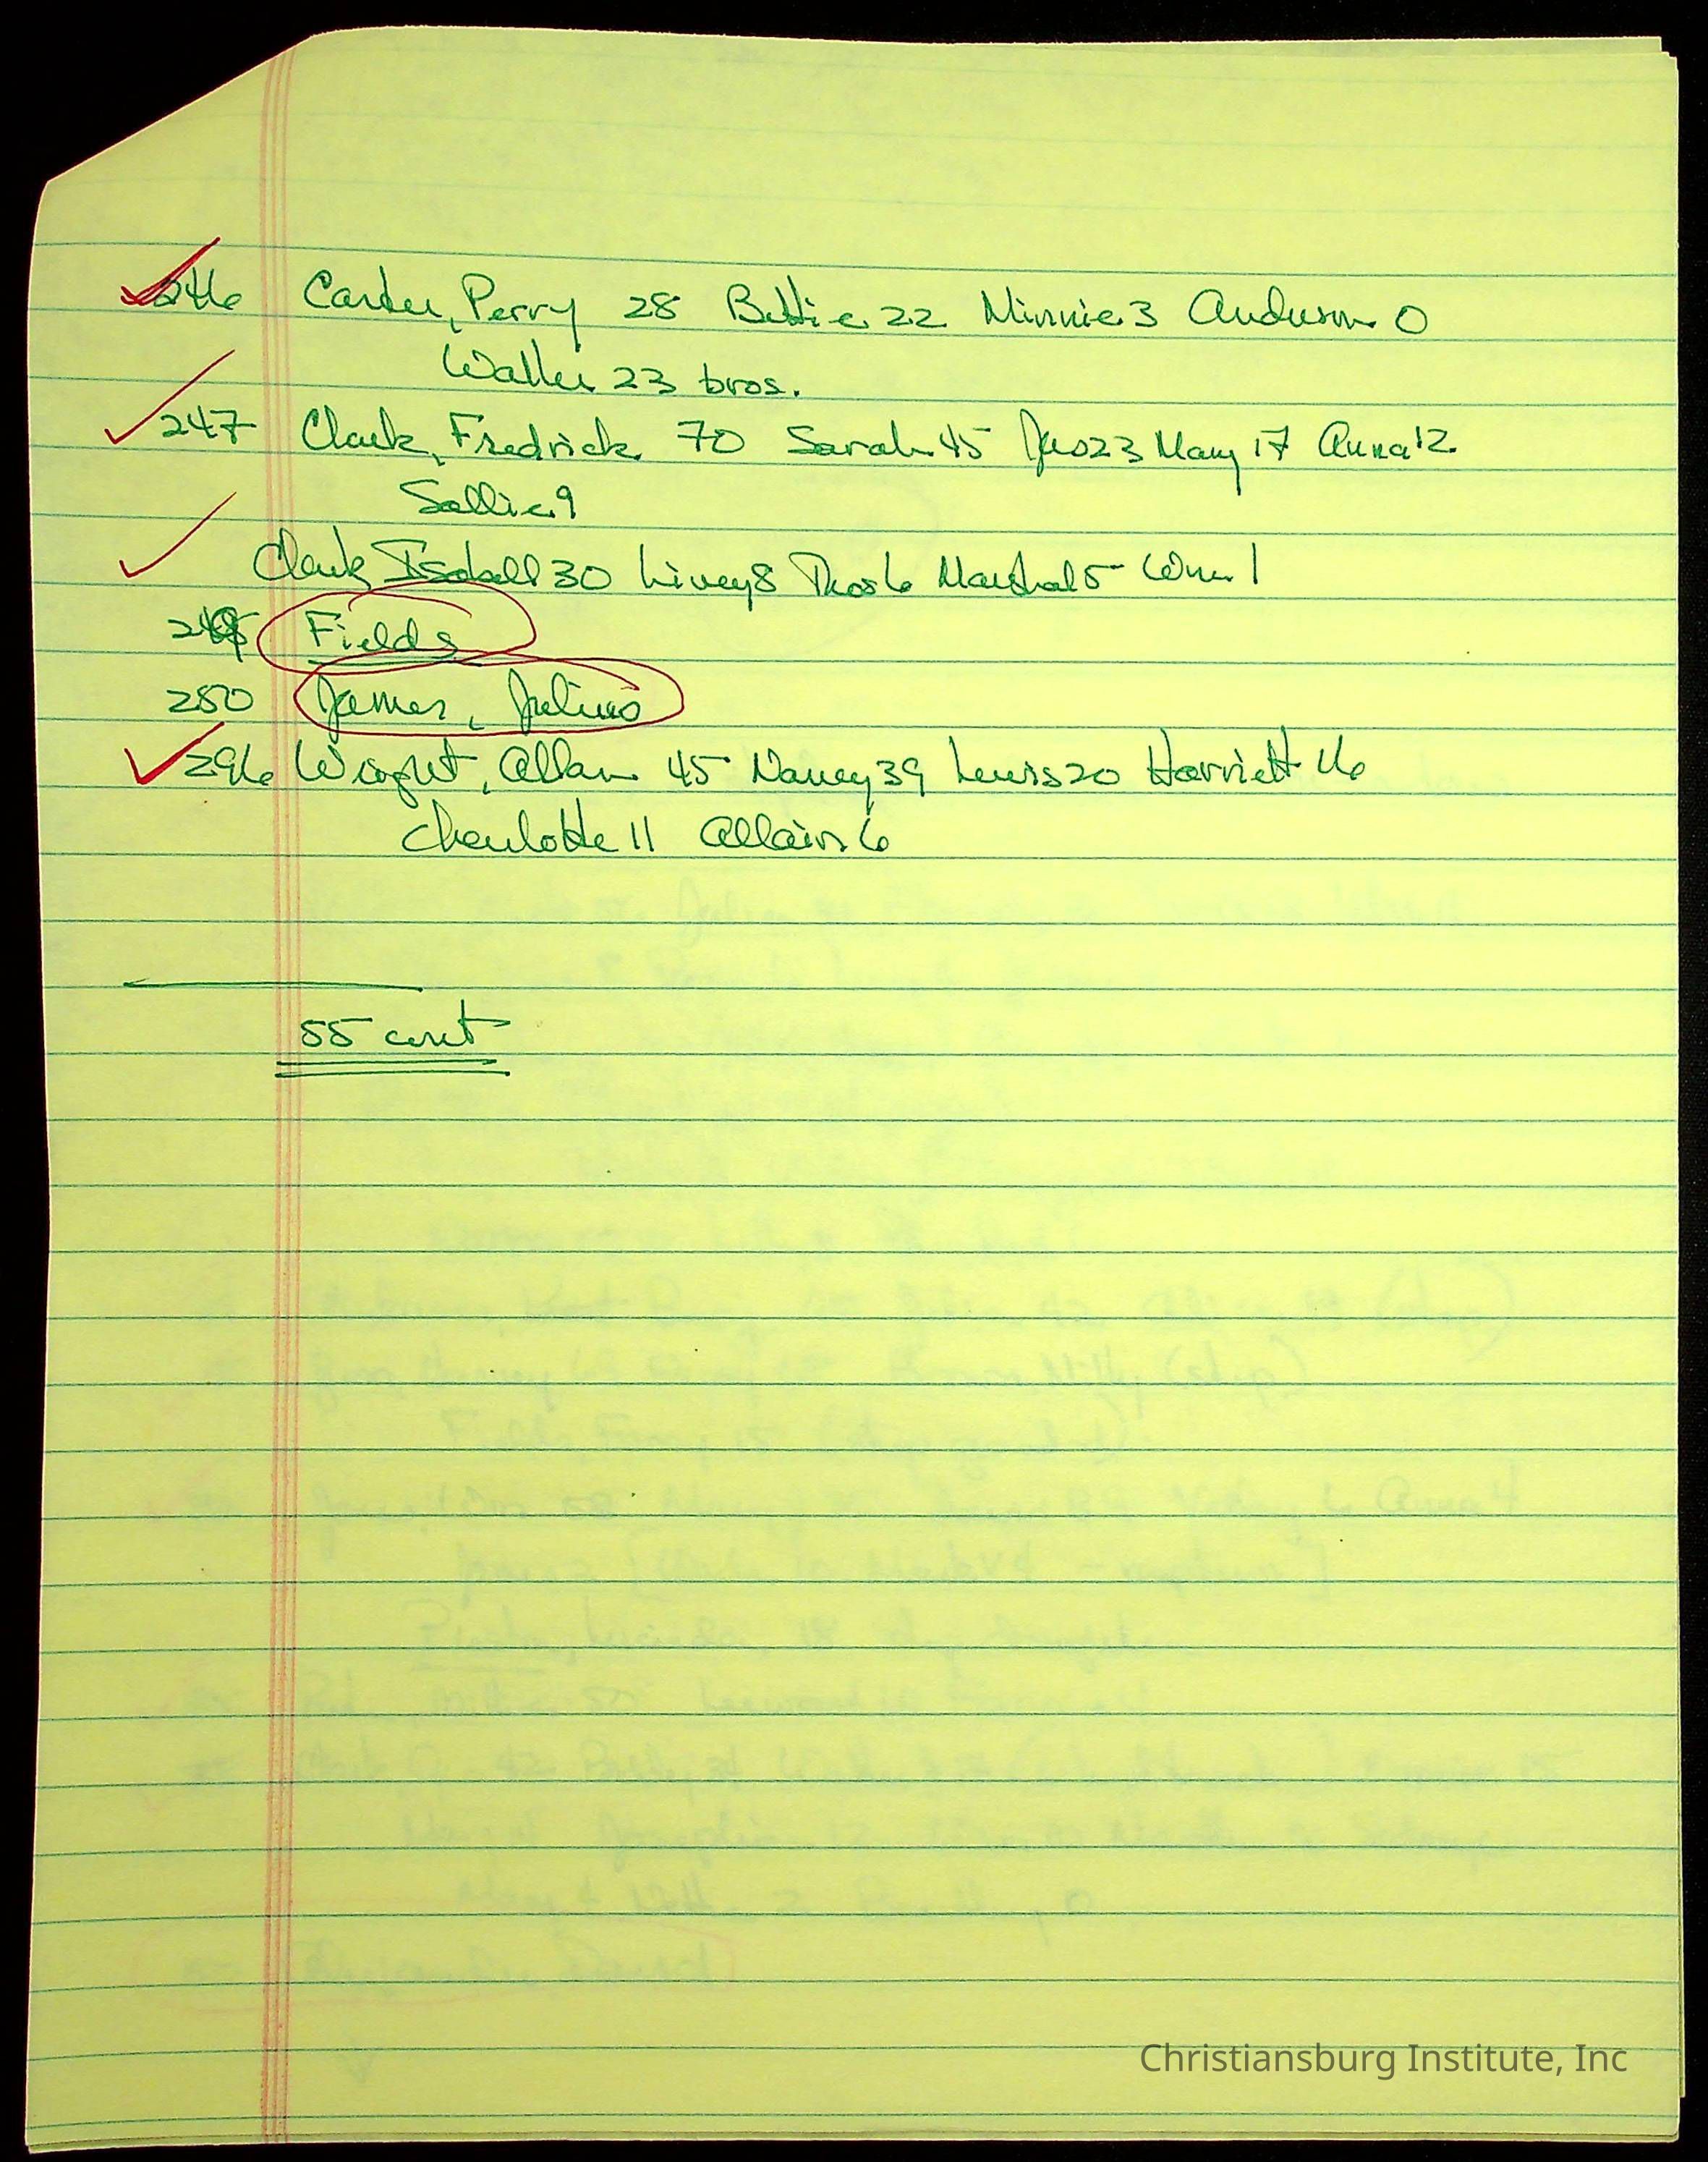 246 Carter, Perry 28 Bettie 22 Minnie 3 Anderson 0
Walter 23 bros.
247 Clark, Fredrick 70 Sarah 45 Jas 23 Mary 17 Anna 12
Sallie 9
Clark Isabell 30 Livey 8 Thos 6 Marshal 5 Wm 1
Fields
250 James, Julius
296 Wright, Allan 45 Nancy 39 Lewis 20 Harriett 16
Charlotte 11 Allain 6
55 cont
Christiansburg Institute, Inc